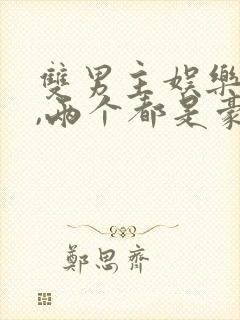 雙男主娛樂
,兩个都是豪
鄭思齊